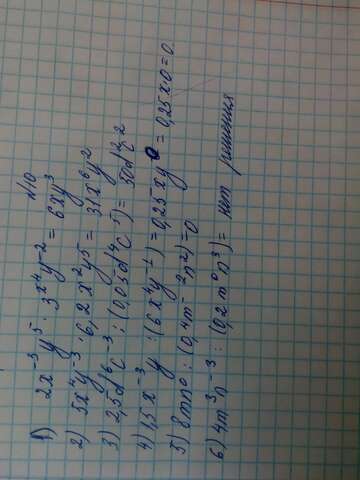 №10
1) 2x⁻³y⁵ · 3x⁴y⁻² = 6xy³
2) 5x⁴y⁻³ · 6,2x²y⁵ = 31x⁶y²
3) 2,5d⁶c⁻³ : (0,05d⁴c⁻⁵) = 50d²c²
4) 1,5x⁻³y : (6x⁴y⁻¹) = 0,25xy⁰ = 0,25x·0 = 0
5) 8mn⁰ : (0,4m⁻²n²) = 0
6) 4m³n⁻³ : (0,2m⁰n³) = нет решения